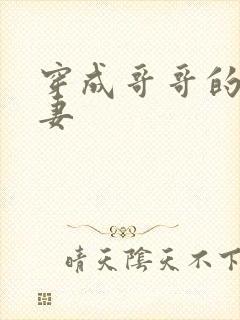 穿成哥哥的
妻
晴天陰天不下